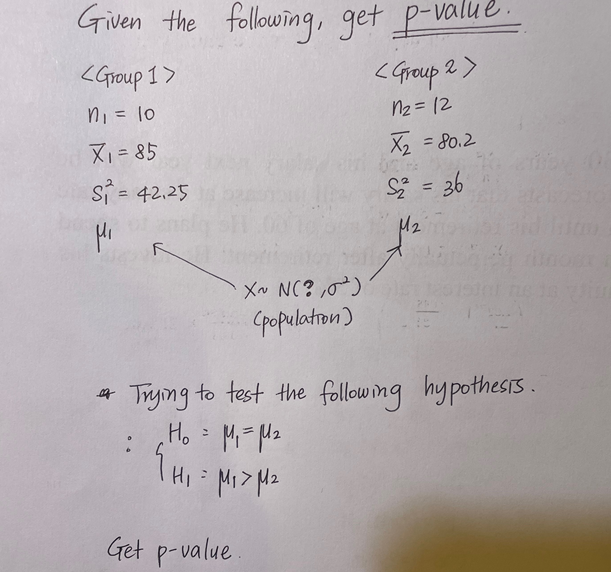 Given the following, get p-value.
<Group 1>
n₁ = 10
X̄₁ = 85
S₁² = 42.25
μ₁
<Group 2>
n₂ = 12
X̄₂ = 80.2
S₂² = 36
μ₂
X ~ N(?, σ²)
(population)
* Trying to test the following hypothesis.
: { H₀ : μ₁ = μ₂
H₁ : μ₁ > μ₂
Get p-value.